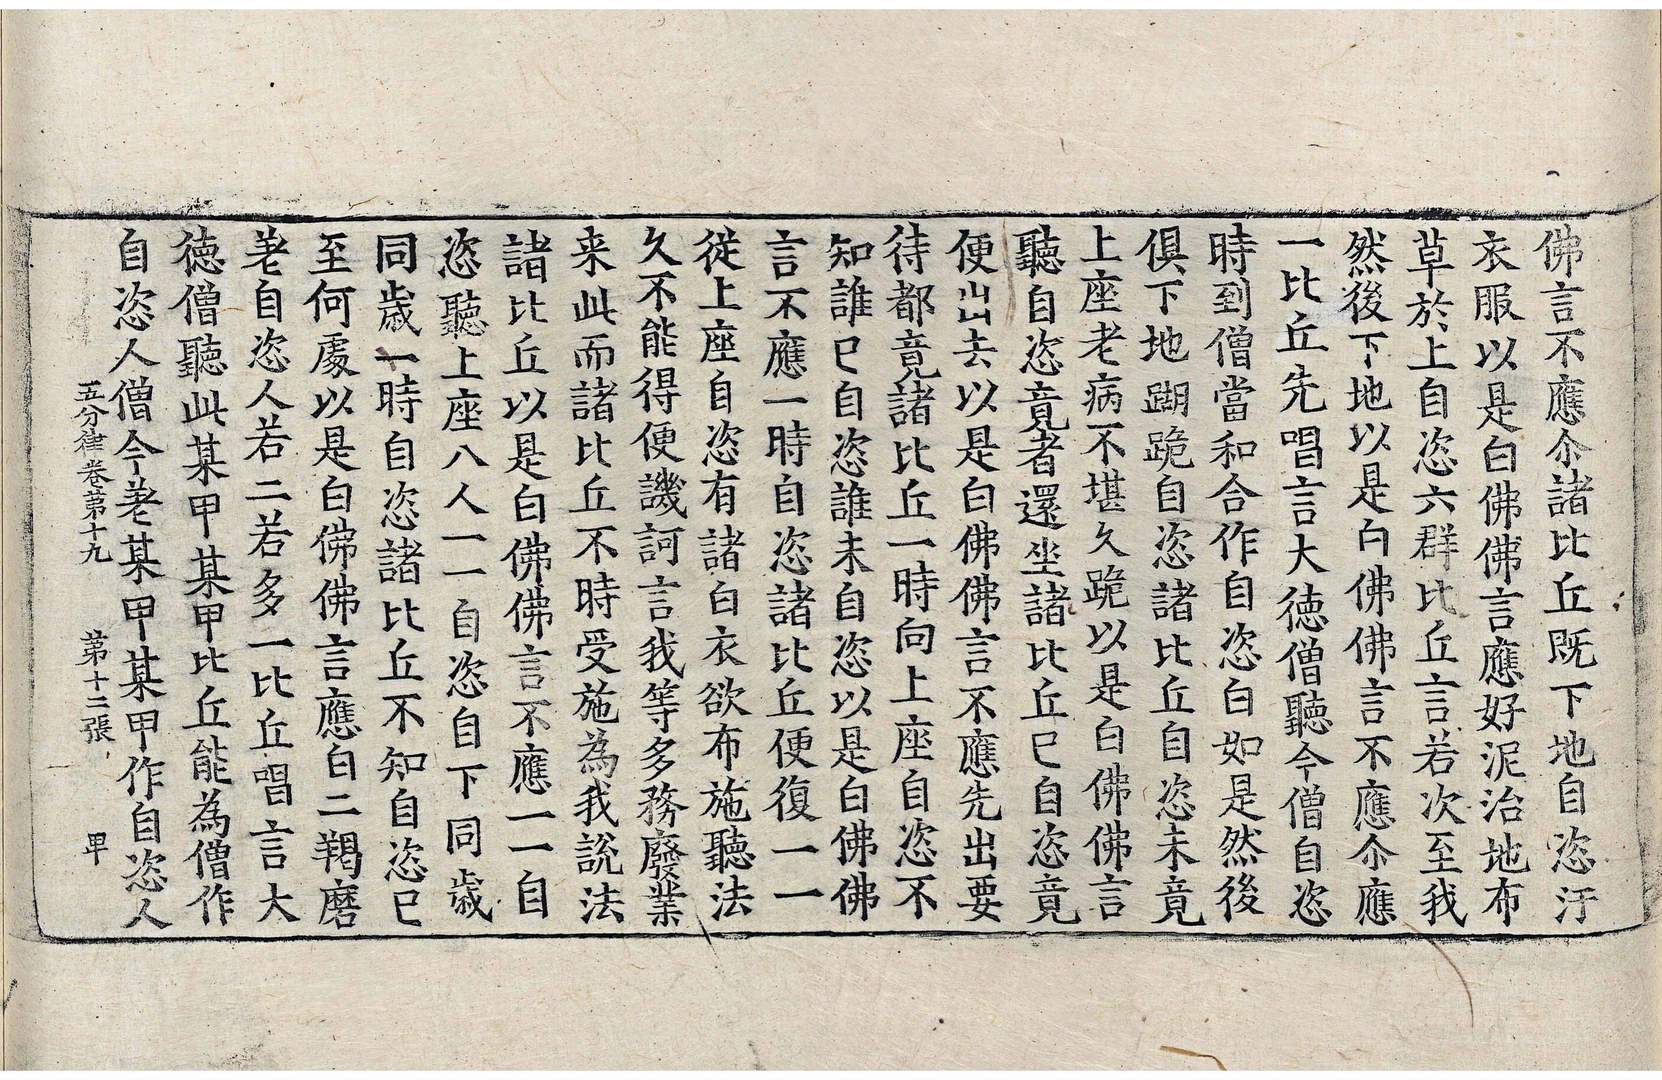 佛言不應尒諸比丘既下地自恣汙
衣服以是白佛佛言應好泥治地布
草於上自恣六群比丘言若次至我
然後下地以是白佛佛言不應尒應
一比丘先唱言大徳僧聽今僧自恣
時到僧當和合作自恣白如是然後
俱下地蹋跪自恣諸比丘自恣未竟
上座老病不堪久跪以是白佛佛言
聽自恣竟者還坐諸比丘已自恣竟
便出去以是白佛佛言不應先出要
待都竟諸比丘一時向上座自恣不
知誰已自恣誰未自恣以是白佛佛
言不應一時自恣諸比丘便復一一
從上座自恣有諸白衣欲布施聽法
久不能得便譏訶言我等多務廢業
来此而諸比丘不時受施為我說法
諸比丘以是白佛佛言不應一一自
恣聽上座八人一一自恣自下同歳
同歳一時自恣諸比丘不知自恣已
至何處以是白佛佛言應白二羯磨
差自恣人若二若多一比丘唱言大
徳僧聽此某甲某甲比丘能為僧作
自恣人僧今差某甲某甲作自恣人
五分律卷第十九 第十二張 甲